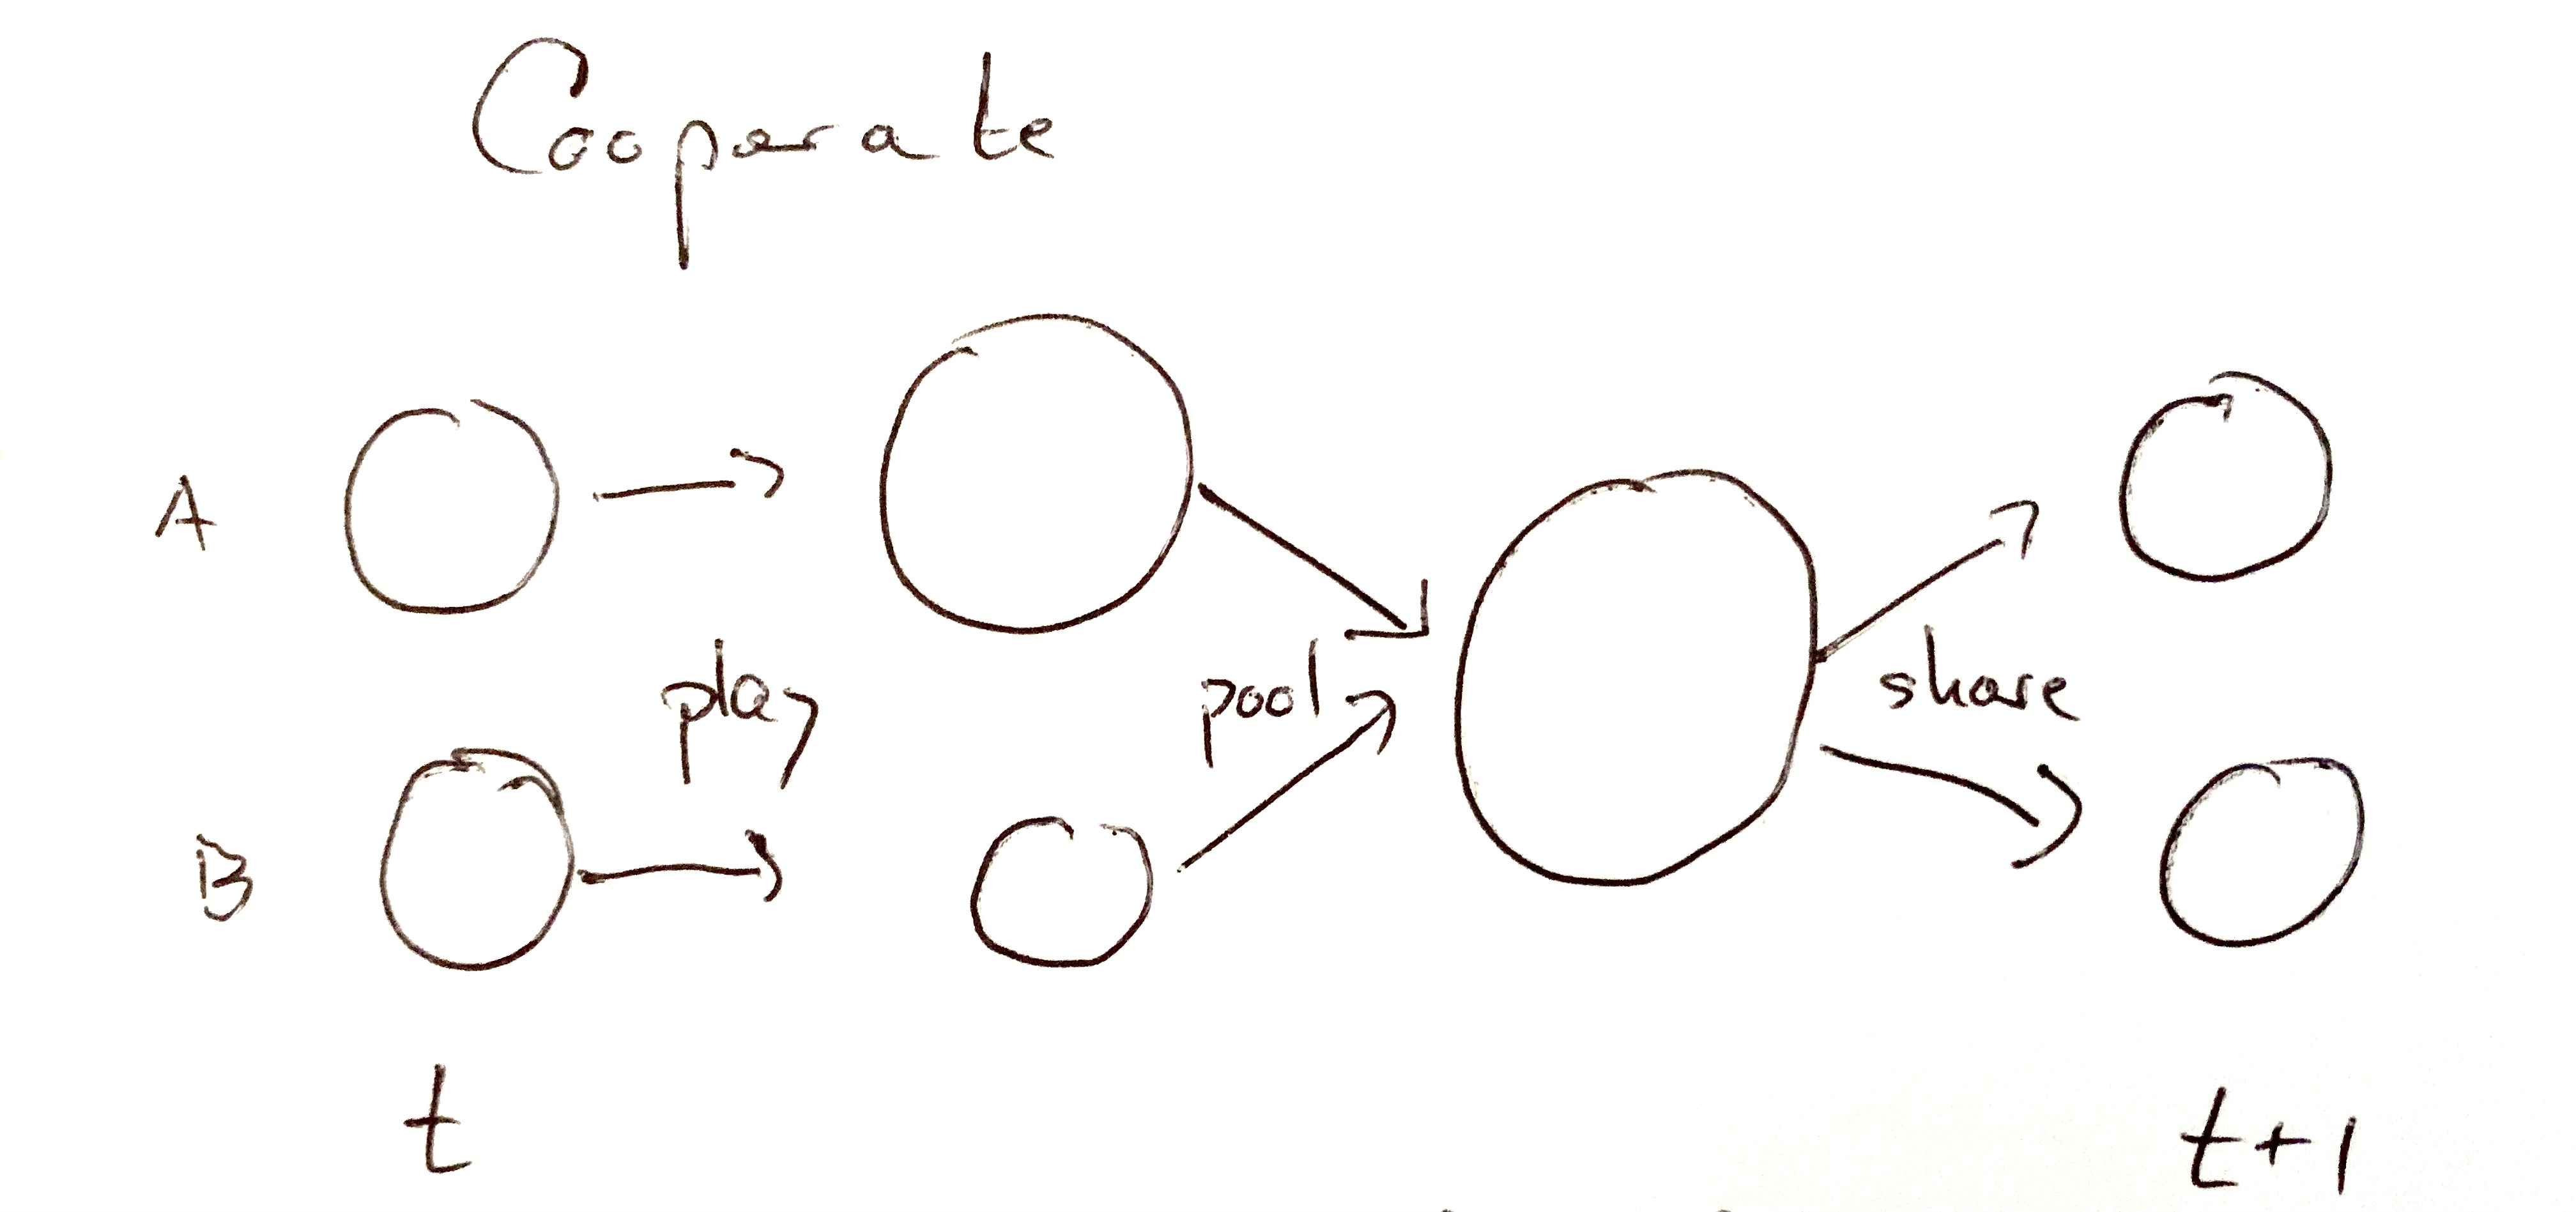 Cooperate
A
play
pool
share
B
t
t+1